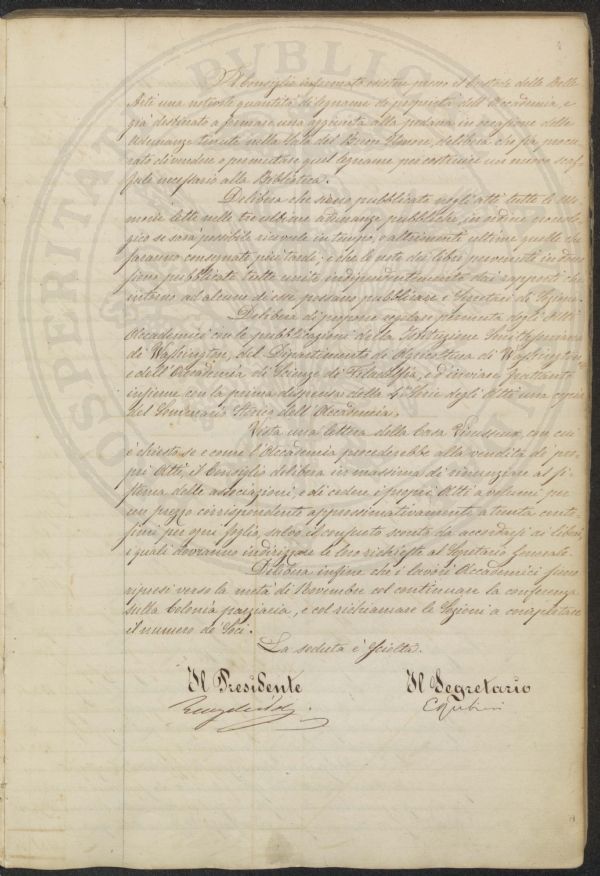 Il Consiglio informato esistere presso il Custode delle Belle
Arti una notevole quantità di legname di proprietà dell'Accademia, e
già destinato a formare una aggiunta alla pedana in occasione delle
Adunanze tenute nella Sala del Buon Umore, delibera che sia procu-
rato di vendere o permutare quel legname per costruire un nuovo scaf-
fale necessario alla Biblioteca.
Delibera che siano pubblicate negli atti tutte le Me-
morie lette nelle tre ultime adunanze pubbliche, in ordine cronolo-
gico se sarà possibile riceverle in tempo, o altrimenti ultime quelle che
saranno consegnate più tardi; e che le note dei libri pervenuti in dono
siano pubblicate tutte unite indipendentemente dai rapporti che
intorno ad alcuni di essi possano pubblicare i Direttori di Sezione.
Delibera di proporre regolare permuta degli Atti
Accademici con le pubblicazioni della Istituzione Smithsoniana
di Washington, del Dipartimento di Agricoltura di Washington
e dell'Accademia di Scienze di Filadelfia, e d'inviare frattanto
insieme con la prima dispensa della Serie degli Atti una copia
del Sommario Storico dell'Accademia.
Vista una lettera della Casa Vieusseux, con cui
è chiesto se e come l'Accademia procederebbe alla vendita de' pro-
pri Atti, il Consiglio delibera in massima di rinunziare al si-
stema delle associazioni, e di cedere i propri Atti a volumi per
un prezzo corrispondente approssimativamente a trenta cente-
simi per ogni foglio, salvo il consueto sconto da accordarsi ai librai,
i quali dovranno indirizzare le loro richieste al Segretario Generale.
Delibera infine che i lavori Accademici siano
ripresi verso la metà di Novembre col continuare la conferenza
sulla Colonia parziaria, e col richiamare le Sezioni a completare
il numero de' Soci.
La seduta è sciolta.
Il Presidente
Il Segretario
PROSPERITATI PUBLICAE